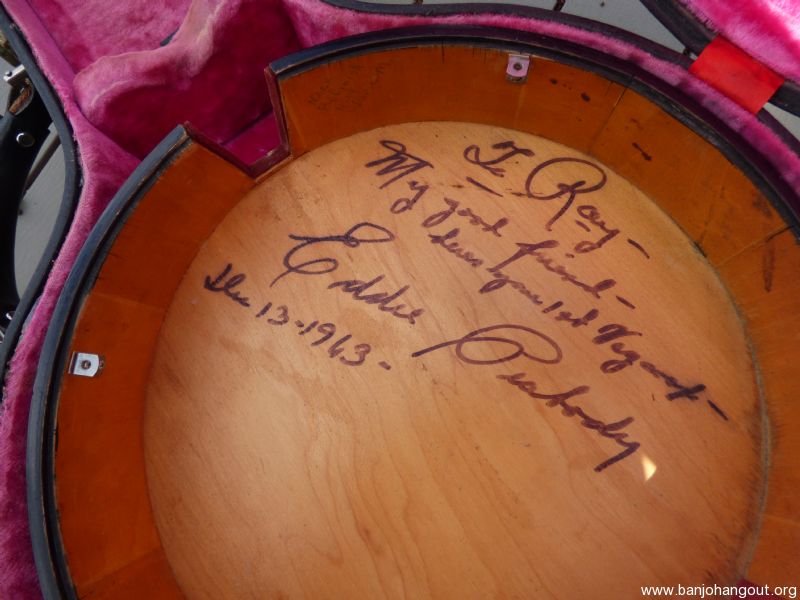 To Ray-
My good friend-
1st Vega
Eddie Peabody
Dec 13-1963-
www.banjohangout.org